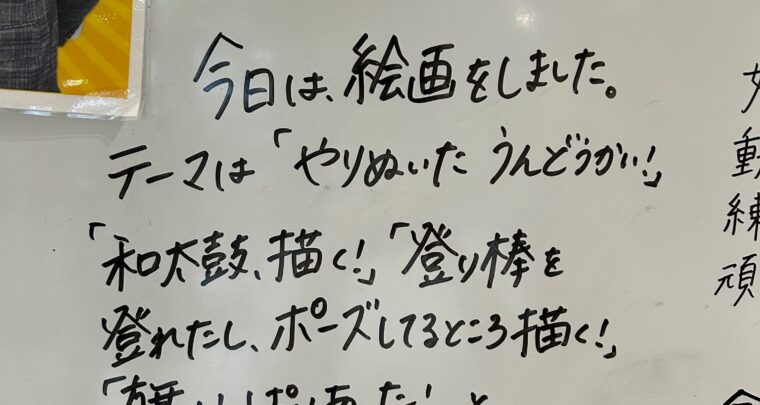 今日は、絵画をしました。
テーマは「やりぬいた うんどうかい!」
「和太鼓、描く!」「登り棒を
登れたし、ポーズしてるところ描く!」
動
練
頑